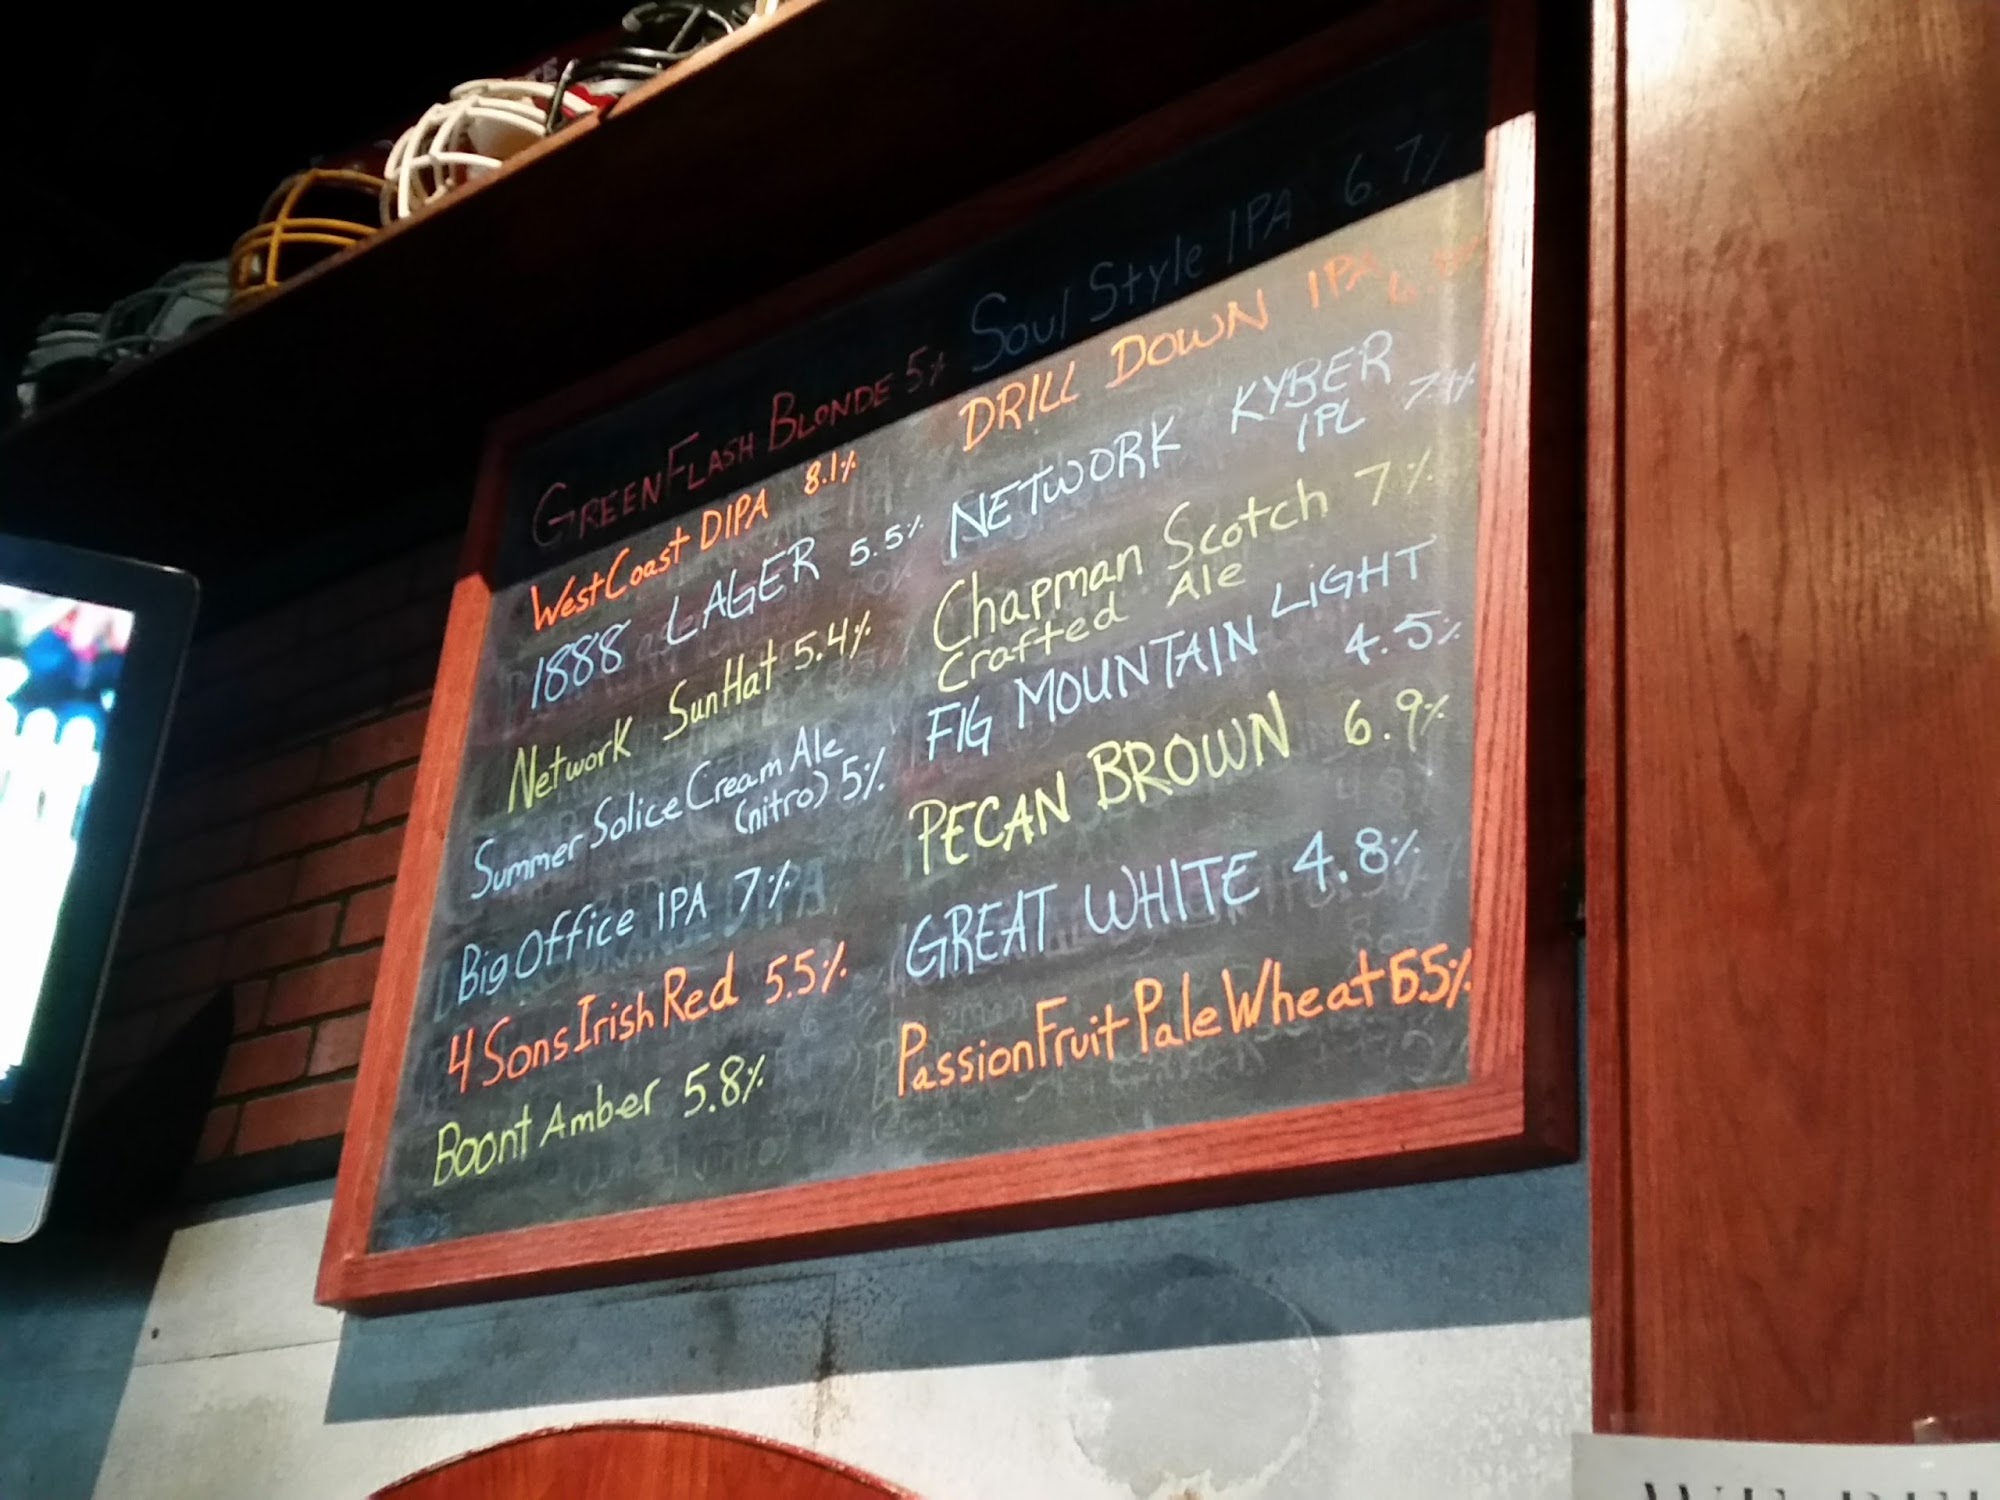 GREENFLASH BLONDE 5%
WestCoast DIPA 8.1%
1888 LAGER 5.5%
Network SunHat 5.4%
Summer Solice Cream Ale
(nitro) 5%
Big Office IPA 7%
4 Sons Irish Red 5.5%
Boont Amber 5.8%
Soul Style IPA 6.7%
DRILL DOWN IPA
NETWORK KYBER
IPL
Chapman Scotch 7%
Crafted Ale
FIG MOUNTAIN LiGHT
4.5%
PECAN BROWN 6.9%
GREAT WHITE 4.8%
PassionFruit Pale Wheat 5.5%